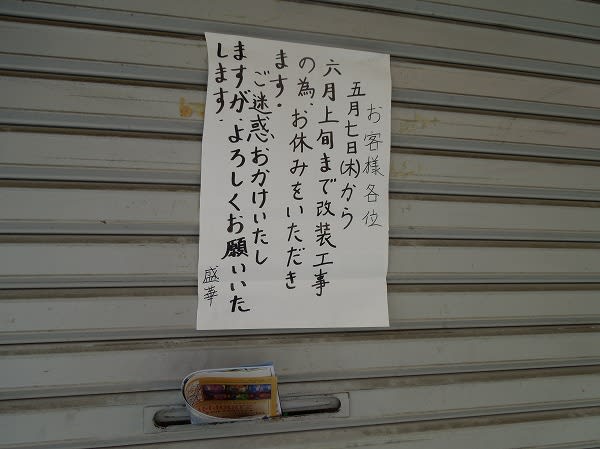 お客様各位
五月七日(木)から
六月上旬まで改装工事
の為、お休みをいただき
ます。
ご迷惑おかけいたし
ますが、よろしくお願いいた
します。
盛華